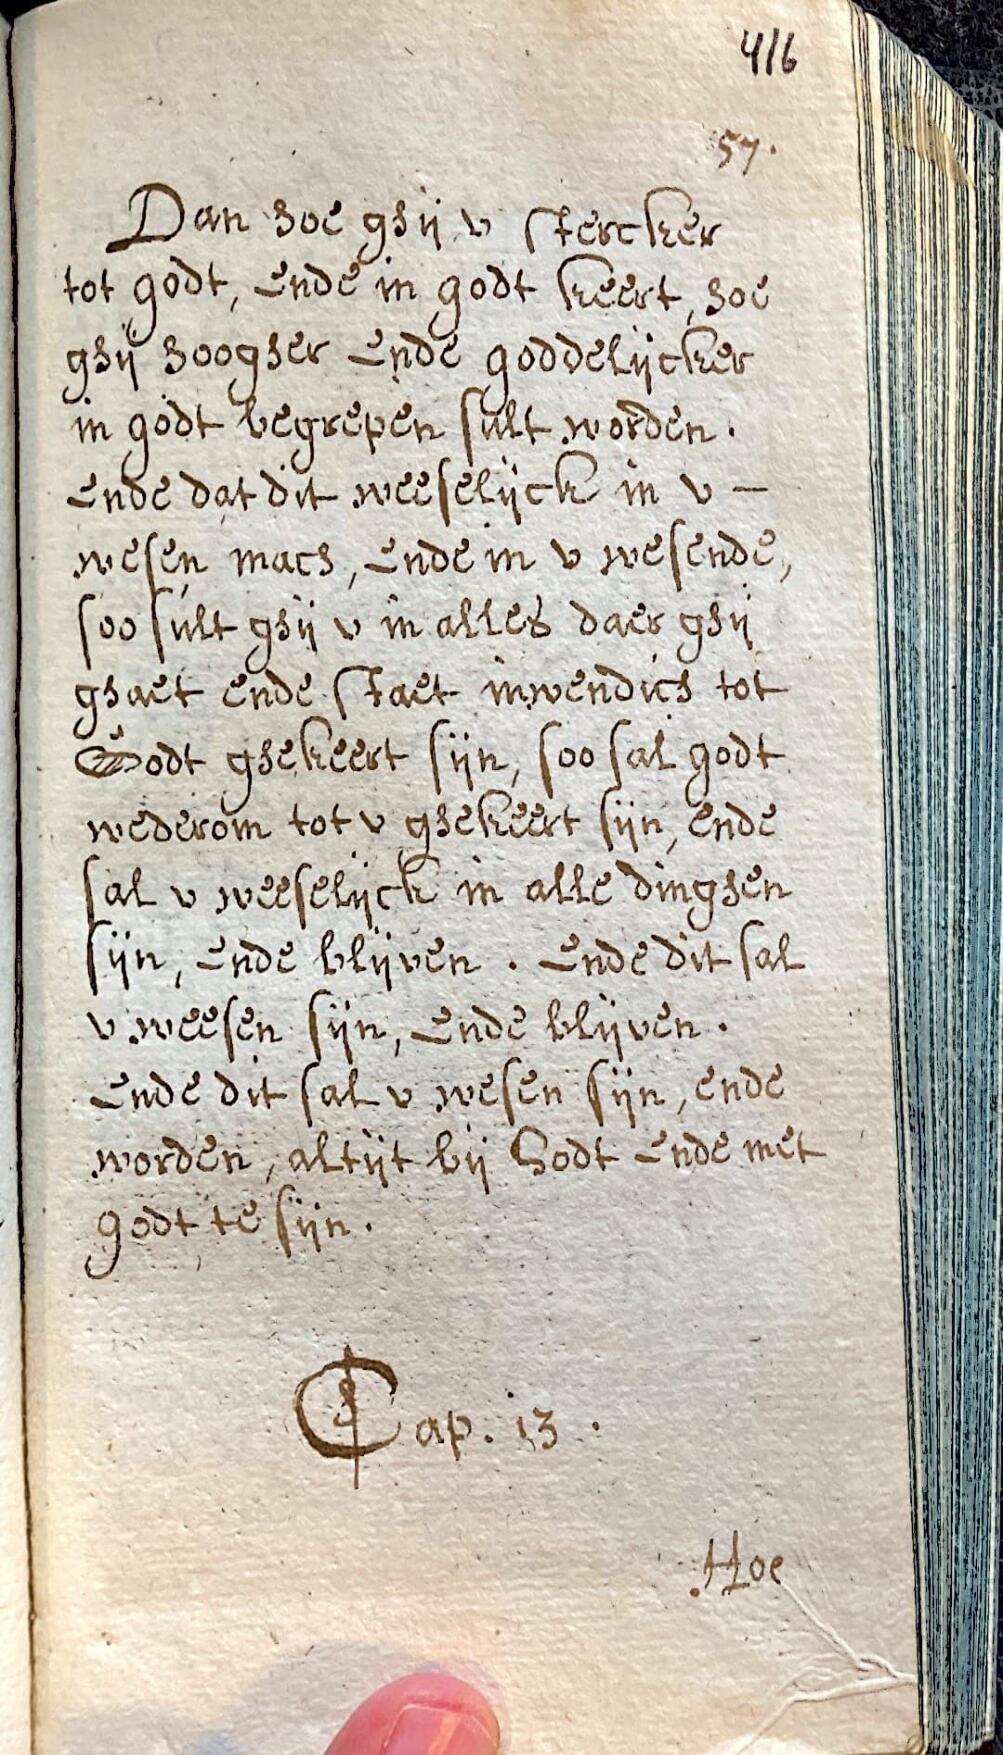 416
57.
Dan hoe ghij v stercker
tot godt, ende in godt keert, hoe
ghij hoogher ende goddelijcker
in godt begrepen sult worden.
Ende dat dit weeselijck in v –
wesen mach, ende in v wesende,
soo sult ghij v in alles daer ghij
ghaet ende staet inwendich tot
Godt ghekeert sijn, soo sal godt
wederom tot v ghekeert sijn, ende
sal v weeselijck in alle dinghen
sijn, ende blijven. Ende dit sal
v weesen sijn, ende blijven.
Ende dit sal v wesen sijn, ende
worden, altijt bij Godt ende met
godt te sijn.
Cap. 13.
Hoe